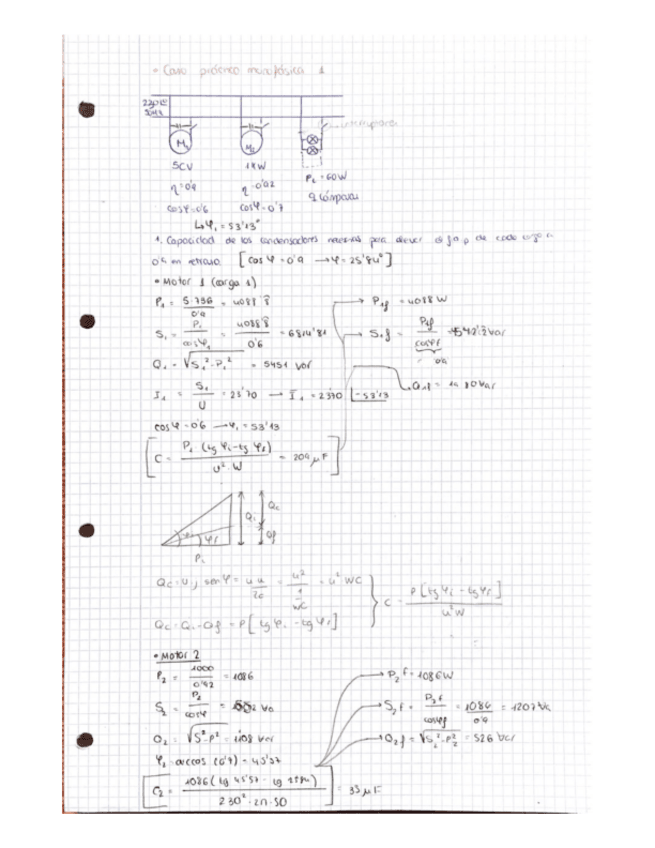 • Caso práctico monofásico 1
M₁
M₂
5CV
1KW
P₂ = 60W
η = 0'9
η = 0'92
9 lámparas
cosφ = 0'6
cosφ = 0'7
↳ φ₁ = 53'13°
1. Capacidad de los condensadores necesarios para elevar el f d p de cada carga a
0'9 en retraso. [cos φ = 0'9 → φ = 25'84°]
• Motor 1 (carga 1)
P₁ = 5·736 / 0'9 = 4088'8̄
P₁f = 4088 W
S₁ = P₁ / cosφ₁ = 4088'8̄ / 0'6 = 6814'81
S₁f = P₁f / cosφf
0'9
Q₁ = √S₁²-P₁² = 5451 var
I₁ = S₁ / U = 23'70 → I₁ = 2370 |-53'13
cosφ = 0'6 → φ₁ = 53'13
[C = P₁ (tg φi - tg φf) / U²·W = 204 μF]
Qc
Qi
Qf
φf
Pi
Qc = U·I senφ = = U² WC
C = P [tg φi - tg φf] / U²W
Qc = Qi - Qf = P [tg φi - tg φf]
• Motor 2
P₂ = 1000 / 0'92 = 1086
P₂f = 1086W
S₂ = P₂ / cosφ =
S₂f = P₂f / cosφf = 1086 / 0'9 = 1207 Va
Q₂ = √S²-P² = 1108 var
Q₂f = √S₂²-P₂² = 526 var
φ₂ = arccos (0'7) = 45'57
C₂ = 1086 (tg 45'57 - tg 25'84) / 230²·2π·50 = 33 μF